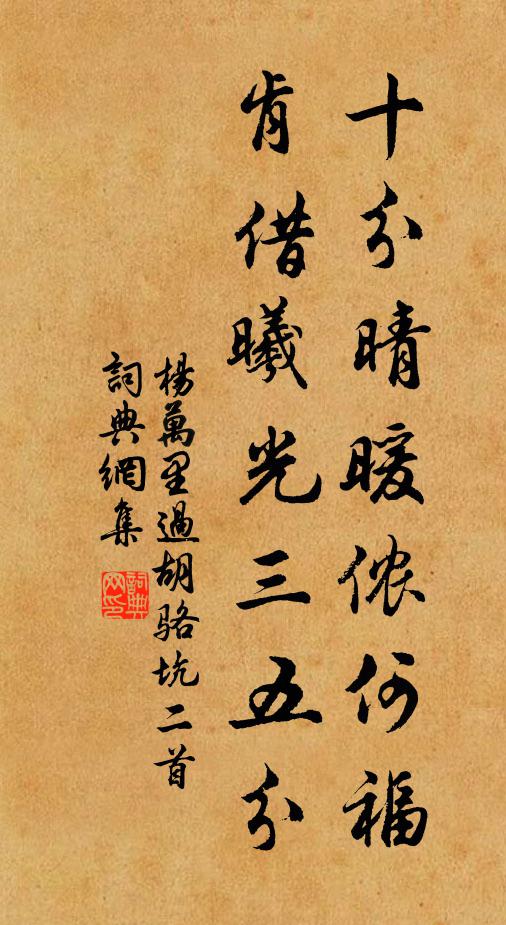 十分晴暖侬何福
肯借曦光三五分
楊萬里過胡骆坑二首
詞典網集
詞典网印